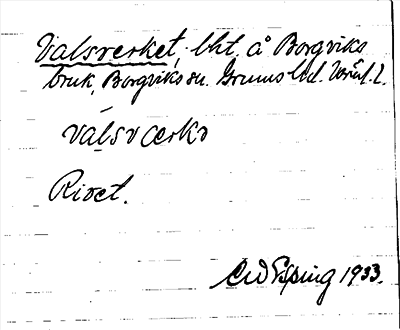 Valsverket, bht. å Borgviks
bruk, Borgviks sn. Grums hd. Värml. l.
valsværko
Rivet.
CW Esping 1933.